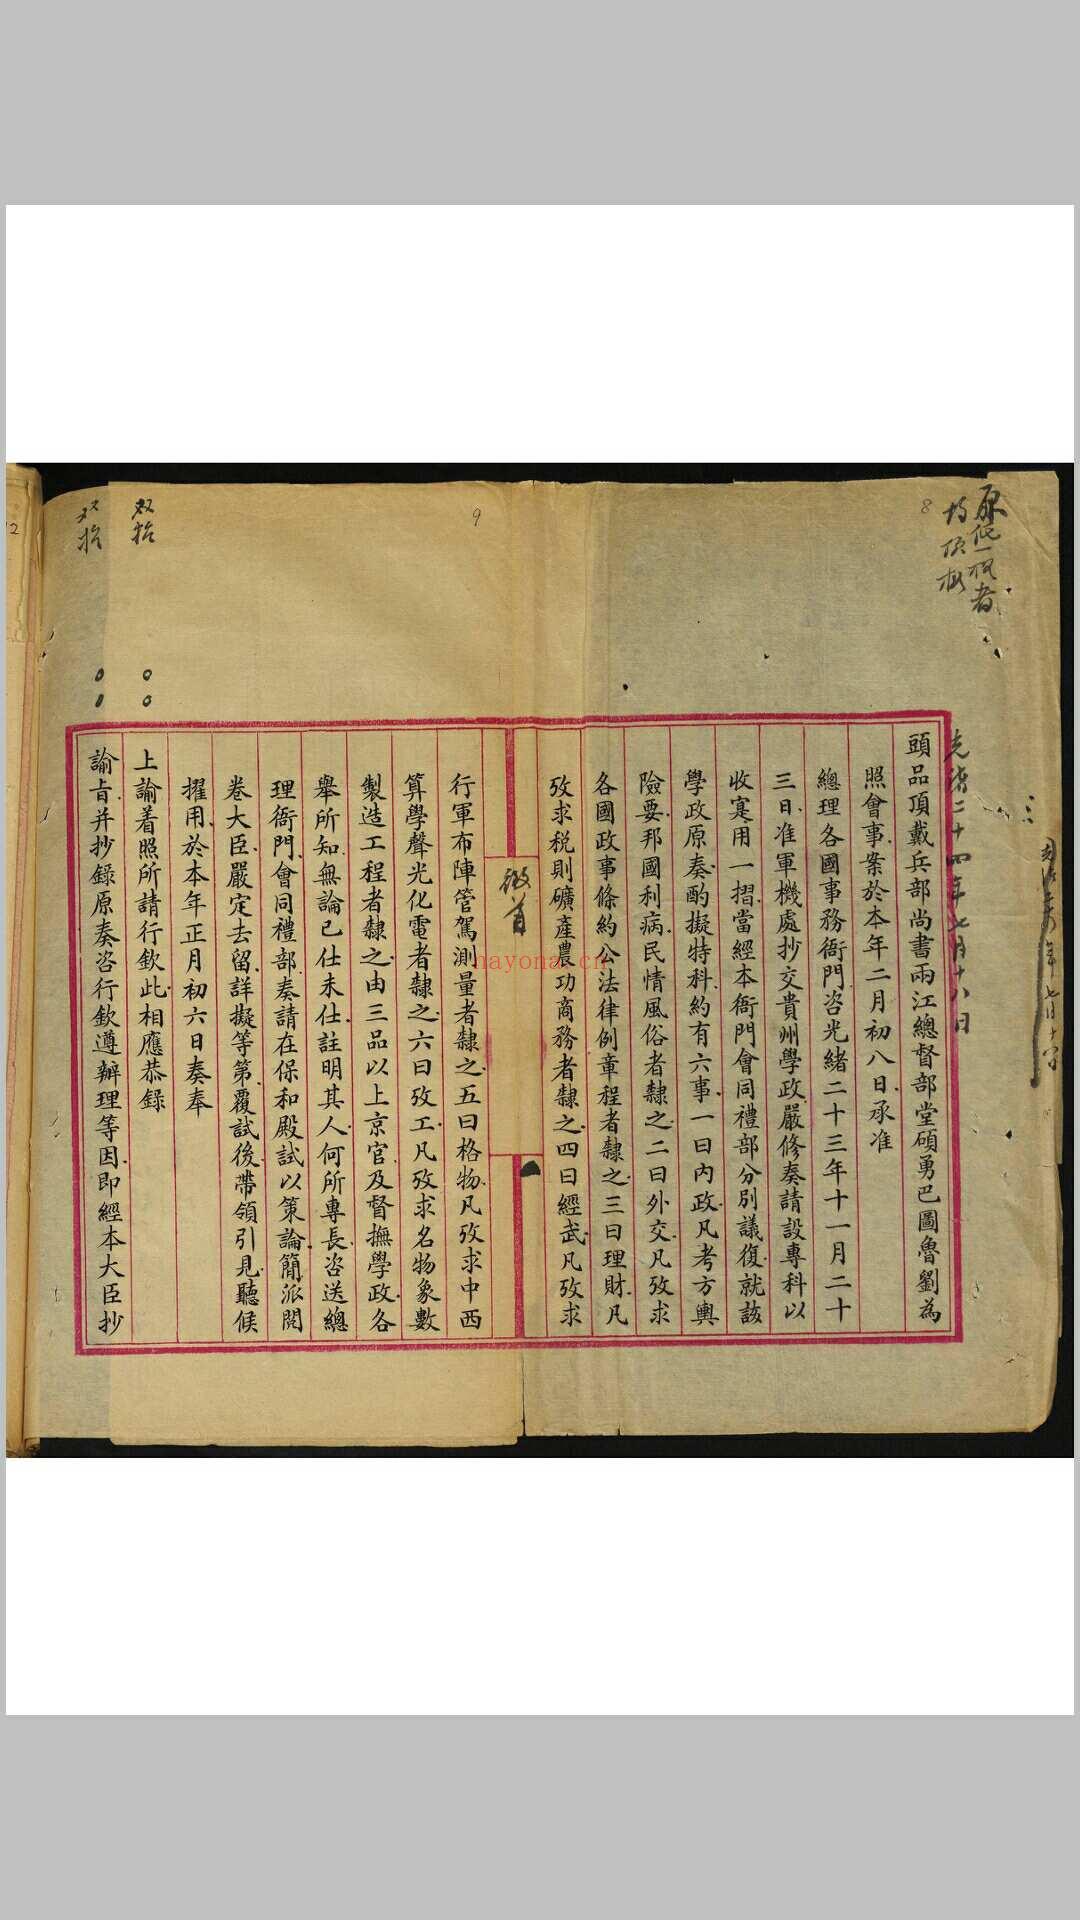 光緒二十四年七月十八日
頭品頂戴兵部尚書兩江總督部堂碩勇巴圖魯劉為
照會事案於本年二月初八日承准
總理各國事務衙門咨光緒二十三年十一月二十
三日准軍機處抄交貴州學政嚴修奏請設專科以
收寔用一摺當經本衙門會同禮部分別議復就該
學政原奏酌擬特科約有六事一曰內政凡考方輿
險要邦國利病民情風俗者隸之二曰外交凡攷求
各國政事條約公法律例章程者隸之三曰理財凡
攷求税則礦產農功商務者隸之四曰經武凡攷求
行軍布陣管駕測量者隸之五曰格物凡攷求中西
算學聲光化電者隸之六曰攷工凡攷求名物象數
製造工程者隸之由三品以上京官及督撫學政各
舉所知無論已仕未仕註明其人何所專長咨送總
理衙門會同禮部奏請在保和殿試以策論簡派閱
卷大臣嚴定去留詳擬等第覆試後帶領引見聽候
擢用於本年正月初六日奏奉
上諭着照所請行欽此相應恭錄
諭旨并抄錄原奏咨行欽遵辦理等因即經本大臣抄
双抬
双抬
8
9
hayona.cn